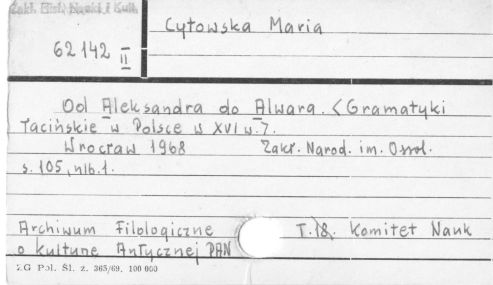 Zakł. Hist. Nauki i Kult.
Cytowska Maria
62 142 II
Od Aleksandra do Alwara. <Gramatyki
łacińskie w Polsce w XVI w.>.
Wrocław 1968 Zakł. Narod. im. Ossol.
s. 105, nlb. 1.
Archiwum Filologiczne T. 18. Komitet Nauk
o kulturze Antycznej PAN
ZG Pol. Śl. z. 365/69, 100 000